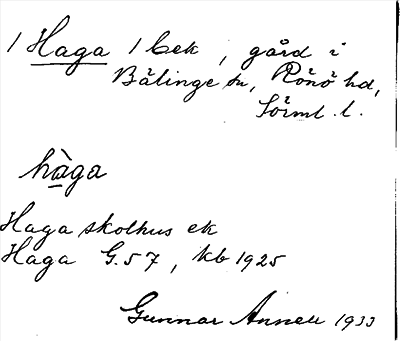 1 Haga 1 bek, gård i
Bälinge sn, Rönö hd,
Sörml. l.
hàga
Haga skolhus ek
Haga G.57, kb 1925
Gunnar Annell 1933